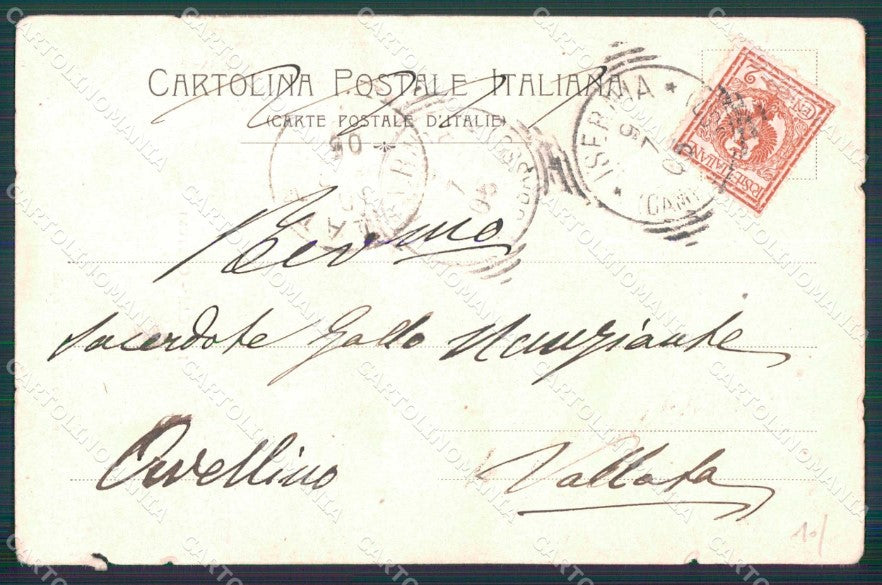 CARTOLINA POSTALE ITALIANA
(CARTE POSTALE D'ITALIE)
ISERNIA
5 7 05
(CAMP
POSTE ITALIANE
05
7
05
Revmo
Sacerdote Gallo Manziante
Avellino Vallata
10/
CARTOLINOMANIA